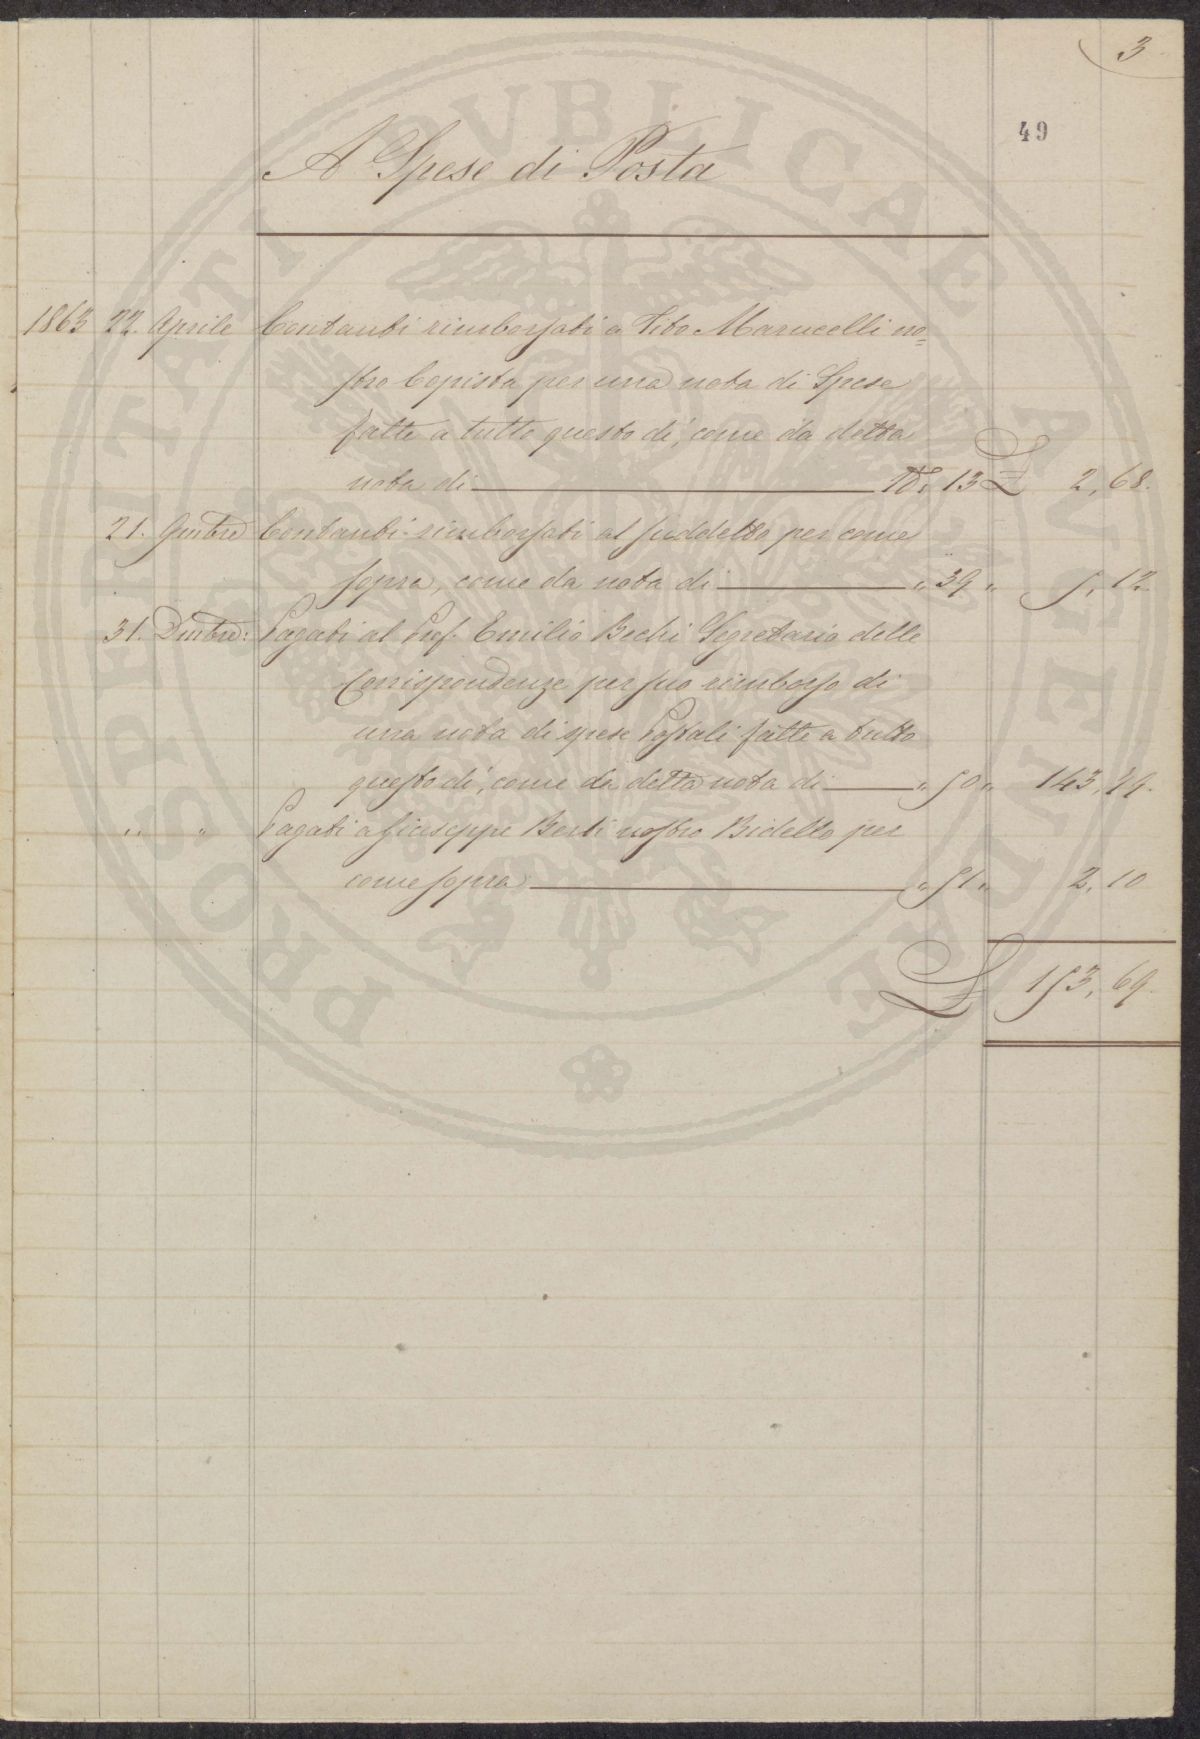 3
49
PROSPERITATI PVBLICAE AVGENDAE
A Spese di Posta
1863 22. Aprile Contanti rimborsati a Tito Marucelli no=
stro Copista per una nota di Spese
fatte a tutto questo dì, come da detta
nota di 13 £ 2,68.
21. 9mbre Contanti rimborsati al suddetto per come
sopra, come da nota di " 39 " 5,12.
31. Dmbre: Pagati al Prof. Emilio Bechi Segretario delle
Corrispondenze per suo rimborso di
una nota di spese Postali fatte a tutto
questo dì, come da detta nota di " 50 " 143,79.
" " Pagati a Giuseppe Berti nostro Bidello per
come sopra " 51 " 2,10
£ 153,69.